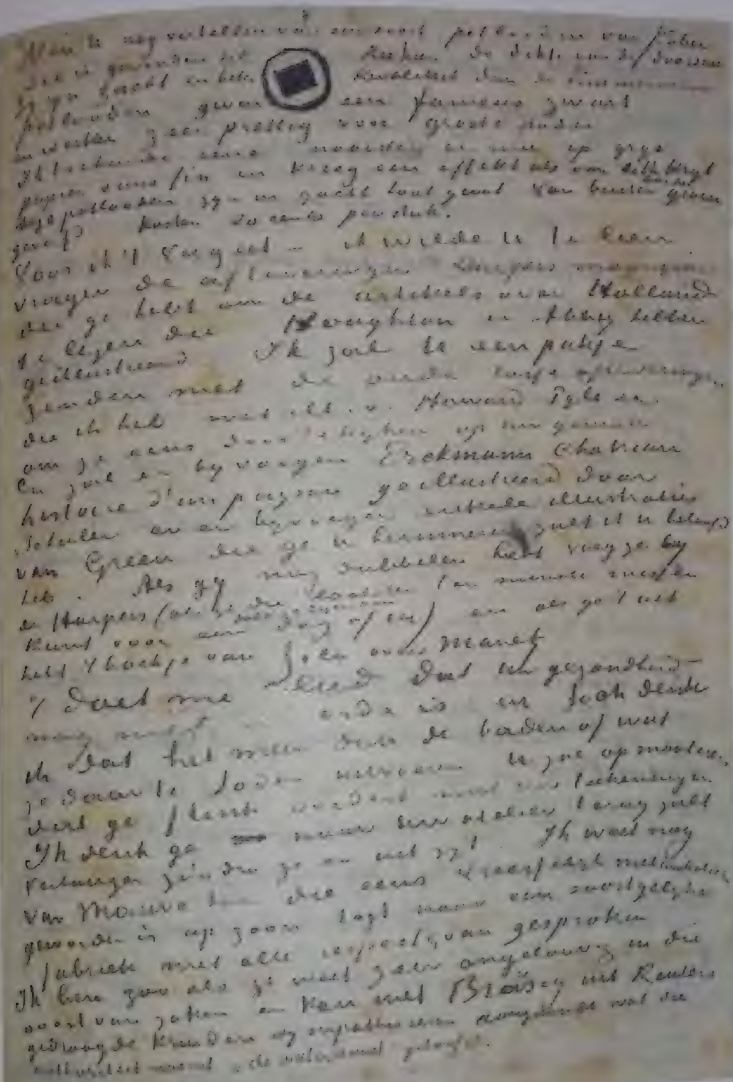 Wou u nog vertellen van een soort potlooden van Faber
die ik gevonden heb. Ziehier de dikte van de doorsnee
zij zijn zacht en beter kwaliteit dan de timmermans
potlooden geven een fameus zwart
en werken zeer prettig voor groote studies
Ik teekende eene naaister er mee op grijs
papier sans fin en kreeg een effekt als van lithkrijt
deze potlooden zijn in zacht hout gevat van buiten groen
geverfd kosten 20 cents per stuk.
Voor ik 't vergeet – ik wilde u te leen
vragen de afleveringen Harpers magazine
die ge hebt om de artikels over Holland
te lezen die Houghton en Abbey hebben
geillustreerd Ik zal U een pakje
zenden met de oude losse afleveringen
die ik heb met ill. v. Howard Pyle en
om ze eens door te kijken op uw gemak
En zal er bij voegen Erckmann Chatrian
histoire d'un paysan geillustreerd door
Schuler en er bijvoegen enkele illustraties
van Green die ge u herinneren zult ik u beloofd
heb. Als gij nog dubbelen hebt voeg ze bij
de Harpers (als ge die
kunt voor een dag of) en als ge 't uit
hebt 't boekje van Zola over Manet
't Doet me leed dat uw gezondheid
nog niet in orde is en toch denk
ik dat het meer dan de baden of wat
ze daar te Soden uitvoeren U zal opmonteren
dat ge flink vordert met uw teekeningen
Ik denk ge naar uw atelier terug zult
verlangen zoodra ge er uit zijt Ik weet nog
van Mauve hoe die eens vreesselijk melankoliek
geworden is op zoon togt naar een soortgelijke
fabriek met alle respect van gesproken
Ik ben zoo als ge weet zeer ongeloovig in die
soort van zaken en kan met Bräsig uit Reuters
gedroogde kruiden sympathiseeren aangaande wat die
autoriteit noemt „de waterkunst" geloof ik.